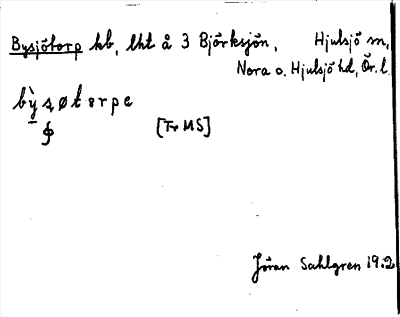 Bysjötorp hb, lht å 3 Björksjön, Hjulsjö sn,
Nora o. Hjulsjö hd, Ör. l.
bỳsøtərpe
[Tr MS]
Jöran Sahlgren 19.2